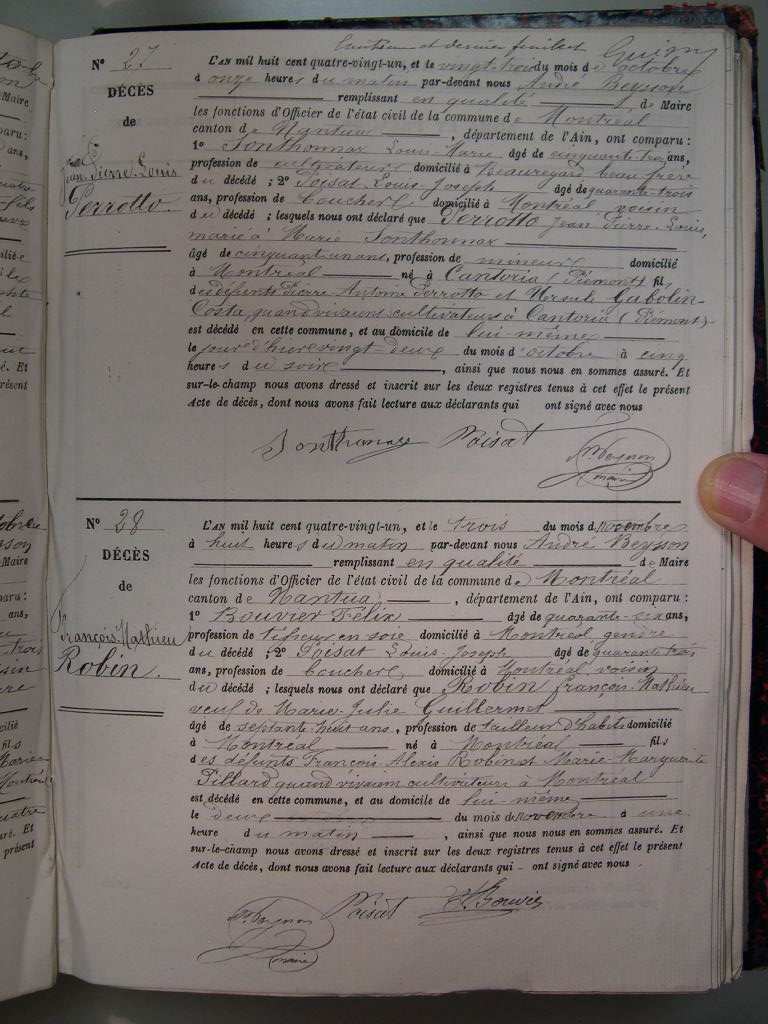 dernier feuillet
N° 27
DÉCÈS
de
Jean-Pierre-Louis
Perrotto.
L'AN mil huit cent quatre-vingt-un, et le vingt-trois du mois de octobre
à onze heures du matin par-devant nous André Beysson
remplissant en qualité de Maire
les fonctions d'Officier de l'état civil de la commune de Montréal
canton de Nantua, département de l'Ain, ont comparu :
1° Sonthonnax Louis-Marie âgé de cinquante-trois ans,
profession de cultivateur domicilié à Beauregard beau frère
du décédé ; 2° Poisat Louis-Joseph âgé de quarante-trois
ans, profession de boucher domicilié à Montréal voisin
du décédé ; lesquels nous ont déclaré que Perrotto Jean-Pierre-Louis,
marié à Marie Sonthonnax
âgé de cinquante un ans, profession de mineur domicilié
à Montréal né à Cantoria (Piémont) fils
de défunts Pierre-Antoine Perrotto et Ursule Gabolin-
Costa quand vivaient cultivateurs à Cantoria (Piémont)
est décédé en cette commune, et au domicile de lui même
le jour d'hier vingt-deux du mois d'octobre à cinq
heures du soir, ainsi que nous nous en sommes assuré. Et
sur-le-champ nous avons dressé et inscrit sur les deux registres tenus à cet effet le présent
Acte de décès, dont nous avons fait lecture aux déclarants qui ont signé avec nous
Sonthonnax Poisat
maire
N° 28
DÉCÈS
de
François-Mathieu
Robin.
L'AN mil huit cent quatre-vingt-un, et le trois du mois de novembre
à huit heures du matin par-devant nous André Beysson
remplissant en qualité de Maire
les fonctions d'Officier de l'état civil de la commune de Montréal
canton de Nantua, département de l'Ain, ont comparu :
1° Bouvier Félix âgé de quarante-six ans,
profession de tisseur en soie domicilié à Montréal gendre
du décédé ; 2° Poisat Louis-Joseph âgé de quarante trois
ans, profession de boucher domicilié à Montréal voisin
du décédé ; lesquels nous ont déclaré que Robin François-Mathieu
veuf de Marie-Julie Guillermet
âgé de septante huit ans, profession de tailleur d'habits domicilié
à Montréal né à Montréal fils
des défunts François Alexis Robin et Marie-Marguerite
Pillard quand vivaient cultivateurs à Montréal
est décédé en cette commune, et au domicile de lui-même
le deux du mois de novembre à une
heure du matin, ainsi que nous nous en sommes assuré. Et
sur-le-champ nous avons dressé et inscrit sur les deux registres tenus à cet effet le présent
Acte de décès, dont nous avons fait lecture aux déclarants qui ont signé avec nous
Poisat F. Bouvier
maire